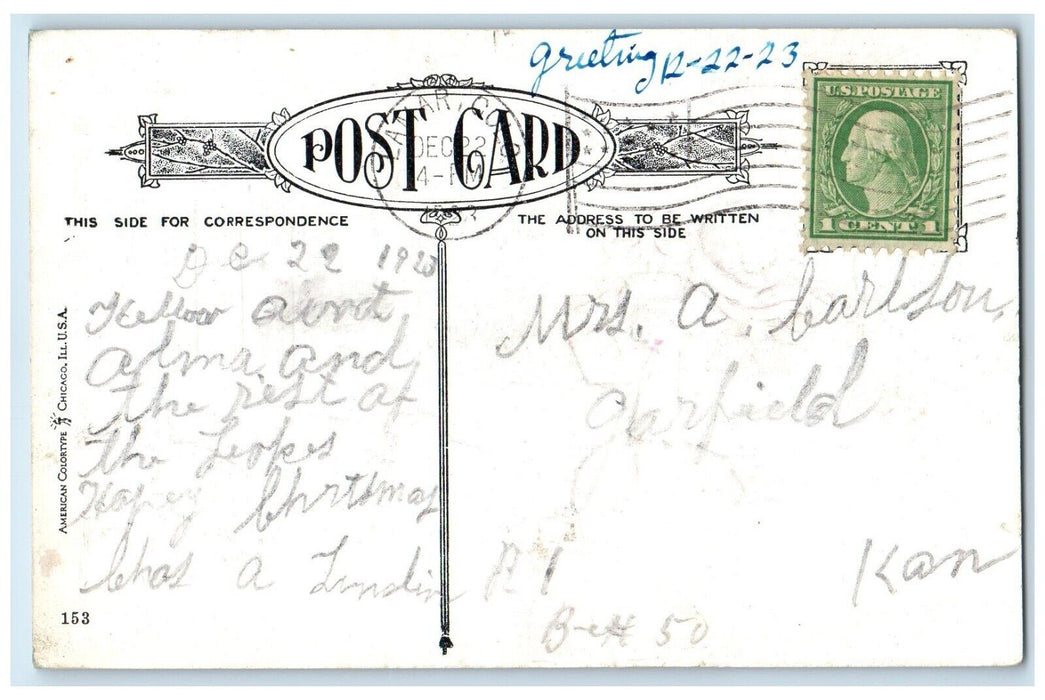 Greeting 12-22-23
POST CARD
LAMAR, C
DEC 22
4-PM
U.S. POSTAGE
1 CENT 1
THIS SIDE FOR CORRESPONDENCE
THE ADDRESS TO BE WRITTEN
ON THIS SIDE
De 22 1923
Hellow aunt
alma and
the rest of
the
Hapey Chrtsmas
Chas A
R 1
B-ex 50
Mrs. A. Carlson,
Garfield
Kan
AMERICAN COLORTYPE CHICAGO, ILL. U.S.A.
153